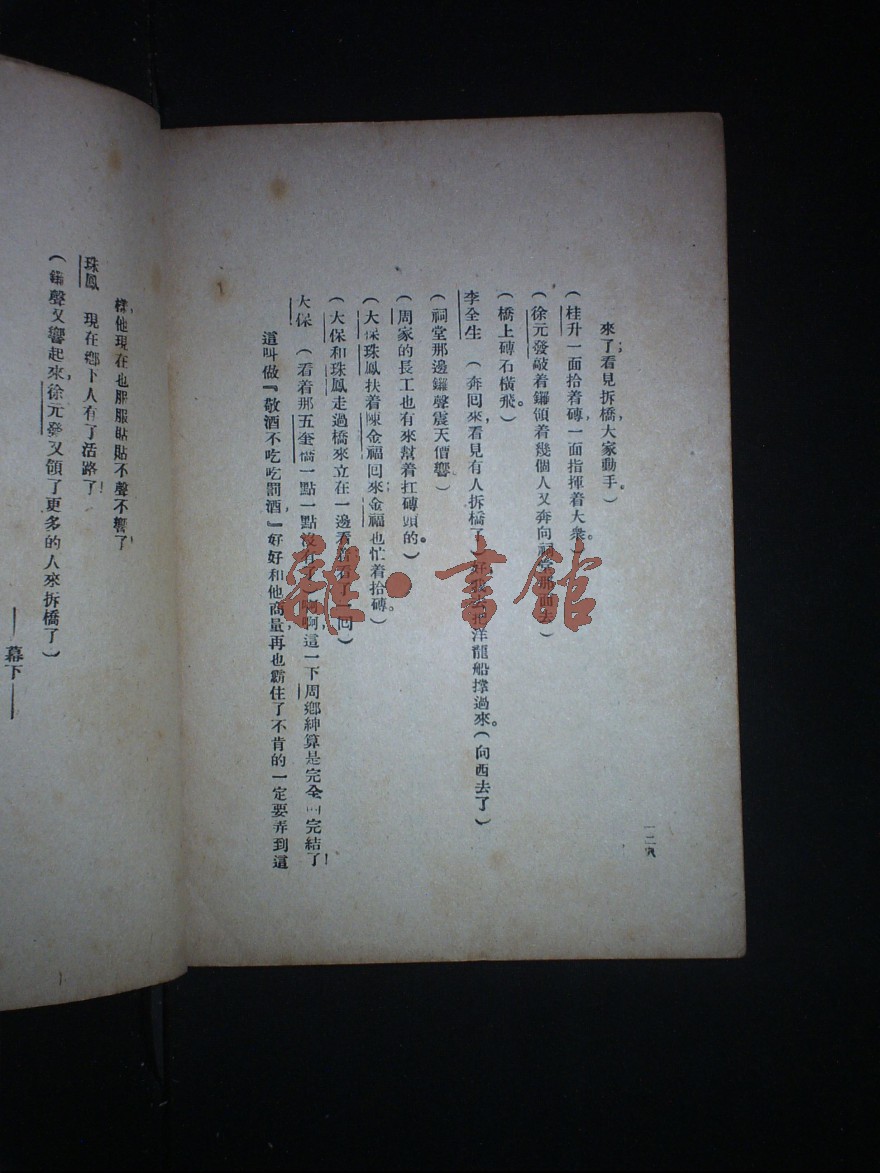 來了；看見拆橋，大家動手。）
（桂升一面拾着磚，一面指揮着大衆。）
（徐元發敲着鑼領着幾個人又奔向祠堂那面去）
（橋上磚石橫飛。）
李全生　（奔囘來，看見有人拆橋了）好，我去把洋龍船撑過來。（向西去了）
（祠堂那邊鑼聲震天價響）
（周家的長工也有來幫着扛磚頭的。）
（大保珠鳳扶着陳金福回來，金福也忙着拾磚。）
（大保和珠鳳走過橋來立在一邊看着石了一囘）
大保　（看着那五奎橋一點一點沒有了）啊啊，這一下周鄉紳算是完全完結了！
這叫做『敬酒不吃吃罰酒，』好好和他商量，再也霸住了不肯的一定要弄到這
樣，他現在也服服貼貼不聲不響了
珠鳳　現在鄉下人有了活路了！
（鑼聲又響起來，徐元發又領了更多的人來拆橋了）
——幕下——
一二九
雜·書館